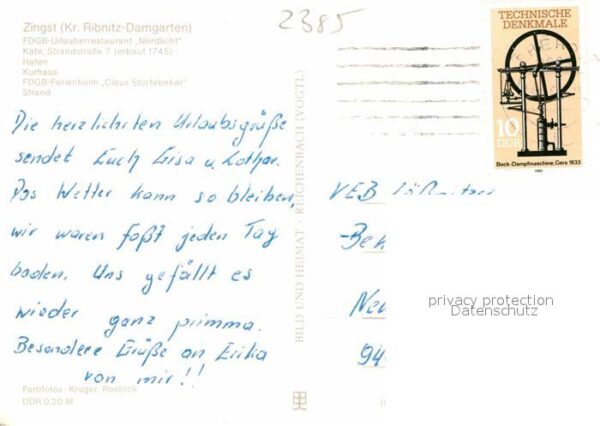 2385
Zingst (Kr. Ribnitz-Damgarten)
FDGB-Urlauberrestaurant „Nordlicht"
Kate, Strandstraße 7 (erbaut 1745)
Hafen
Kurhaus
FDGB-Ferienheim „Claus Störtebeker"
Strand
Die herzlichsten Urlaubsgrüße
sendet Euch Gisa u. Lothar.
Das Wetter kann so bleiben,
wir waren faßt jeden Tag
baden. Uns gefällt es
wieder ganz primma.
Besondere Grüße an Erika
von mir!!
Farbfotos: Krüger, Rostock
DDR 0,20 M
BILD UND HEIMAT · REICHENBACH (VOGTL)
TECHNISCHE
DENKMALE
10
DDR
Bock-Dampfmaschine, Gera 1833
1985
VEB
Neu
94
privacy protection
Datenschutz